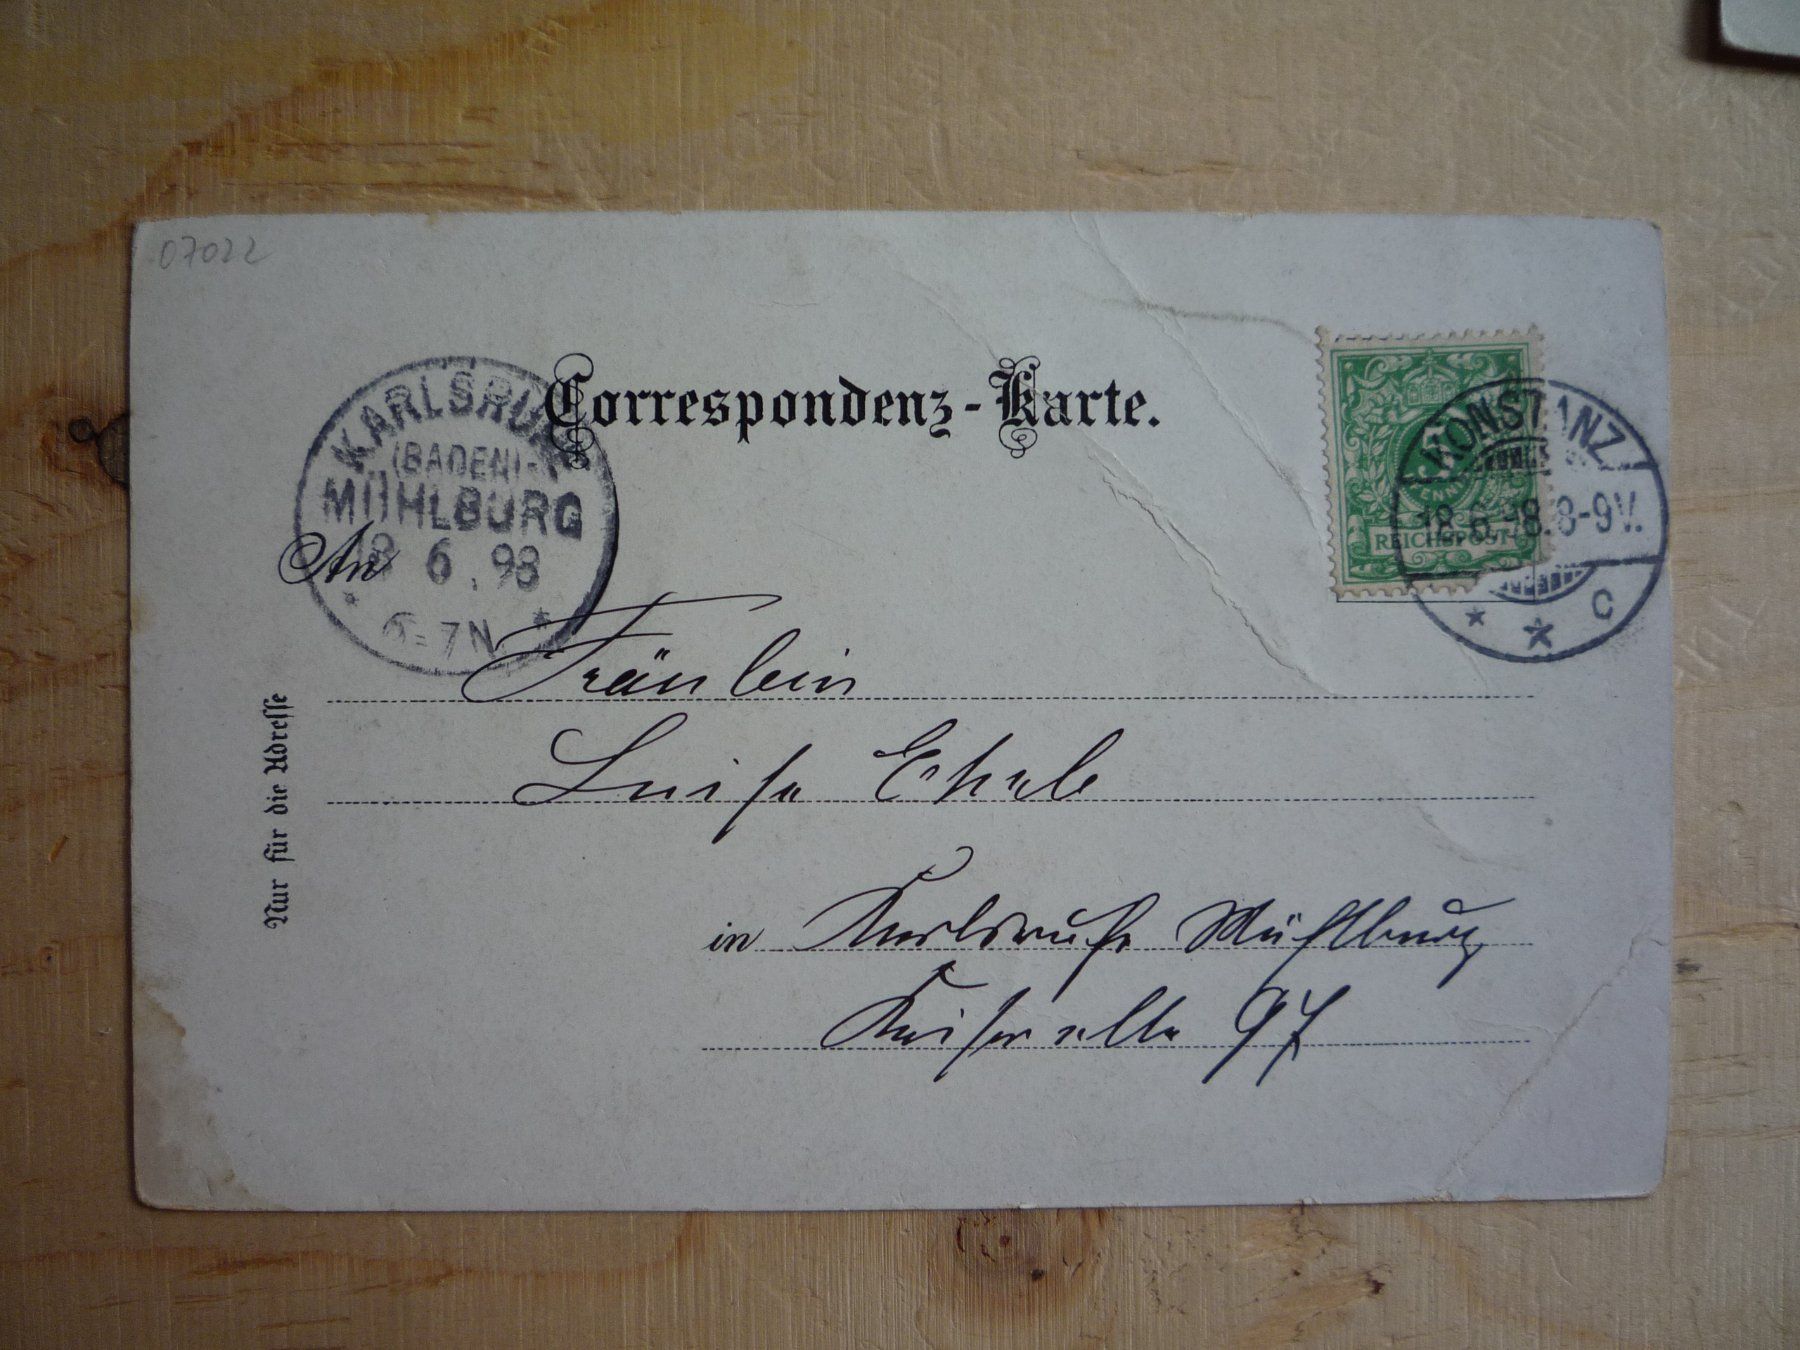 07022
Correspondenz-Karte.
KARLSRUHE
(BADEN)-
MÜHLBURG
18 6. 98
6-7N
KONSTANZ
18.6.98.8-9V.
C
PFENNIG
REICHSPOST
An
Fräulein
Luise Ehrle
in Karlsruhe Mühlburg
Kaiserallee 97
Nur für die Adresse